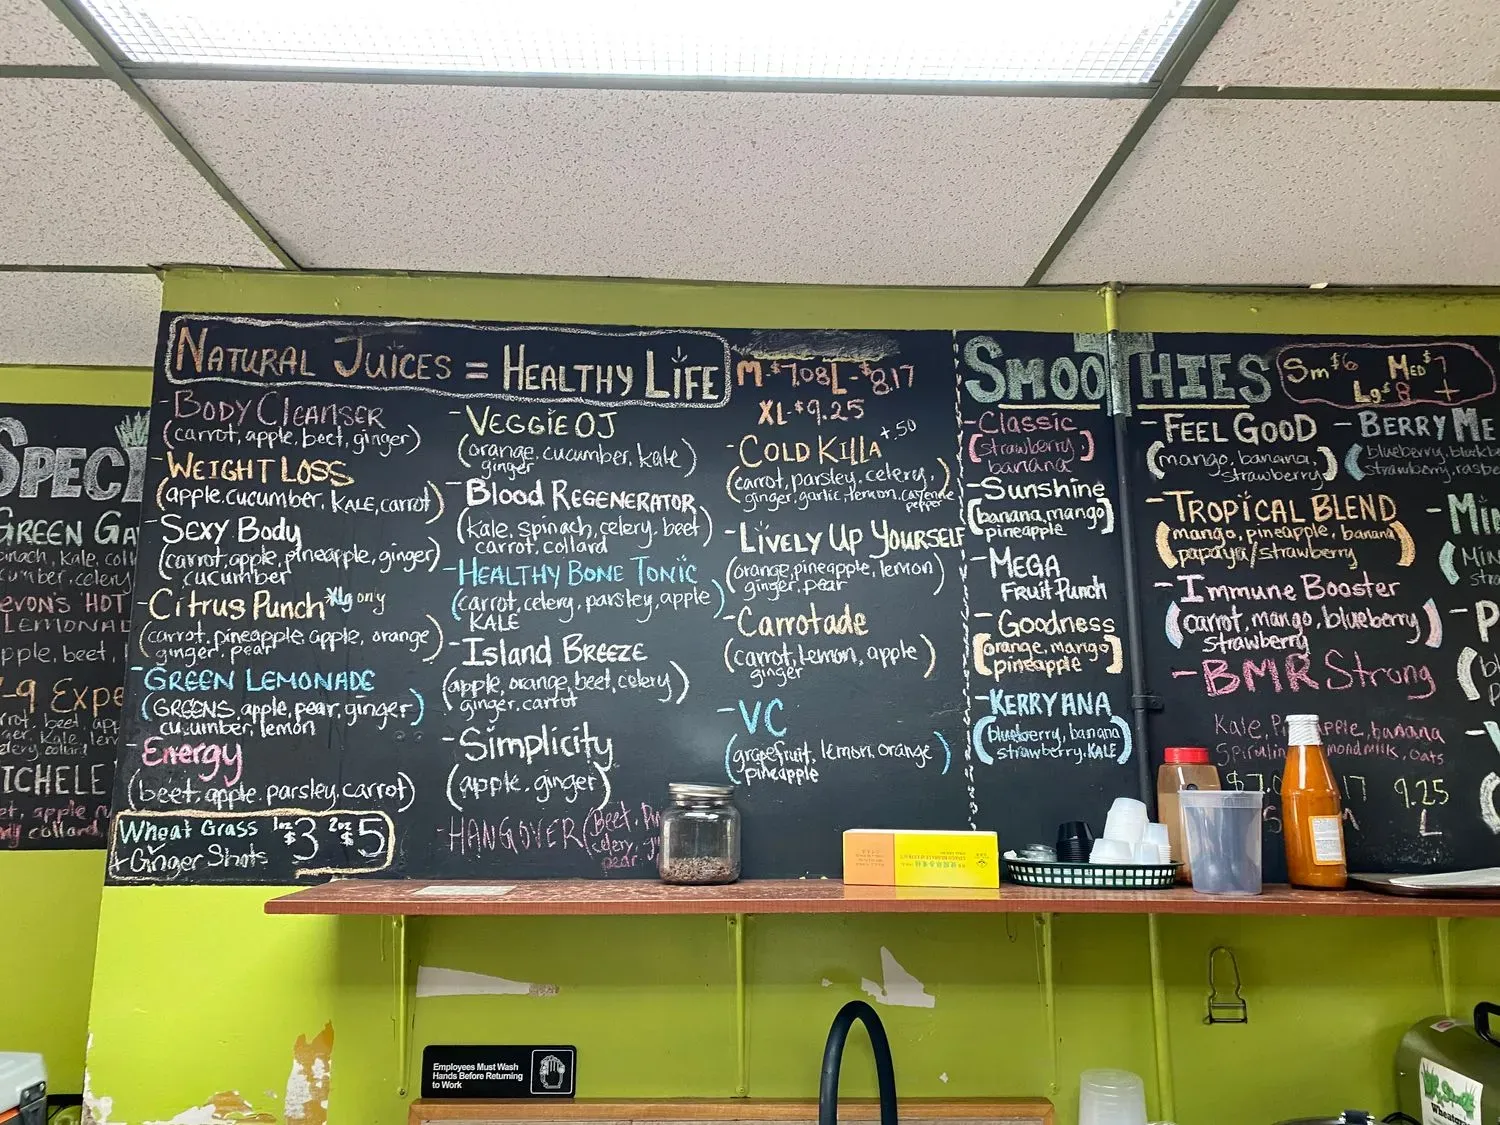 SPEC
GREEN GA
inach, kale, coll
cumber, celery
EVON'S HOT
LEMONAD
pple, beet,
-9 EXPE
rrot, beet, app
ger, kale, lem
elery collard
ICHELE
et, apple
collard
NATURAL JUICES = HEALTHY LIFE
M-$7.08 L-$8.17
XL-$9.25
-BODY CLEANSER
(carrot, apple, beet, ginger)
-WEIGHT LOSS
(apple, cucumber, KALE, carrot)
-SEXY BODY
(carrot, apple, pineapple, ginger)
cucumber
-Citrus Punch *Xlg only
(carrot, pineapple, apple, orange)
ginger, pear
-GREEN LEMONADE
(GREENS, apple, pear, ginger)
cucumber, lemon
-Energy
(beet, apple, parsley, carrot)
Wheat Grass 1oz $3 2oz $5
+ Ginger Shots
-VEGGIE OJ
(orange, cucumber, kale)
ginger
-Blood REGENERATOR
(kale, spinach, celery, beet)
carrot, collard
-HEALTHY BONE TONIC
(carrot, celery, parsley, apple)
KALE
-Island BREEZE
(apple, orange, beet, celery)
ginger, carrot
-Simplicity
(apple, ginger)
-HANGOVER (Beet, 
celery,
pear
-COLD KILLA +.50
(carrot, parsley, celery,)
ginger, garlic, lemon, cayenne
pepper
-LIVELY UP YOURSELF
(orange, pineapple, lemon)
ginger, pear
-Carrotade
(carrot, Lemon, apple)
ginger
-VC
(grapefruit, lemon, orange)
pineapple
SMOOTHIES
Sm $6 MED $7
Lg $8 +
-Classic
(strawberry)
banana
-Sunshine
(banana, mango)
pineapple
-MEGA
FRUIT PUNCH
-Goodness
(orange, mango)
pineapple
-KERRYANA
(blueberry, banana)
strawberry, KALE
-FEEL GOOD
(mango, banana,)
strawberry
-TROPICAL BLEND
(mango, pineapple, banana)
papaya/strawberry
-Immune Booster
(carrot, mango, blueberry)
strawberry
-BMR Strong
Kale, banana
oats
9.25
L
-BERRY ME
blueberry,
strawberry,
Employees Must Wash
Hands Before Returning
to Work
Wheatgra